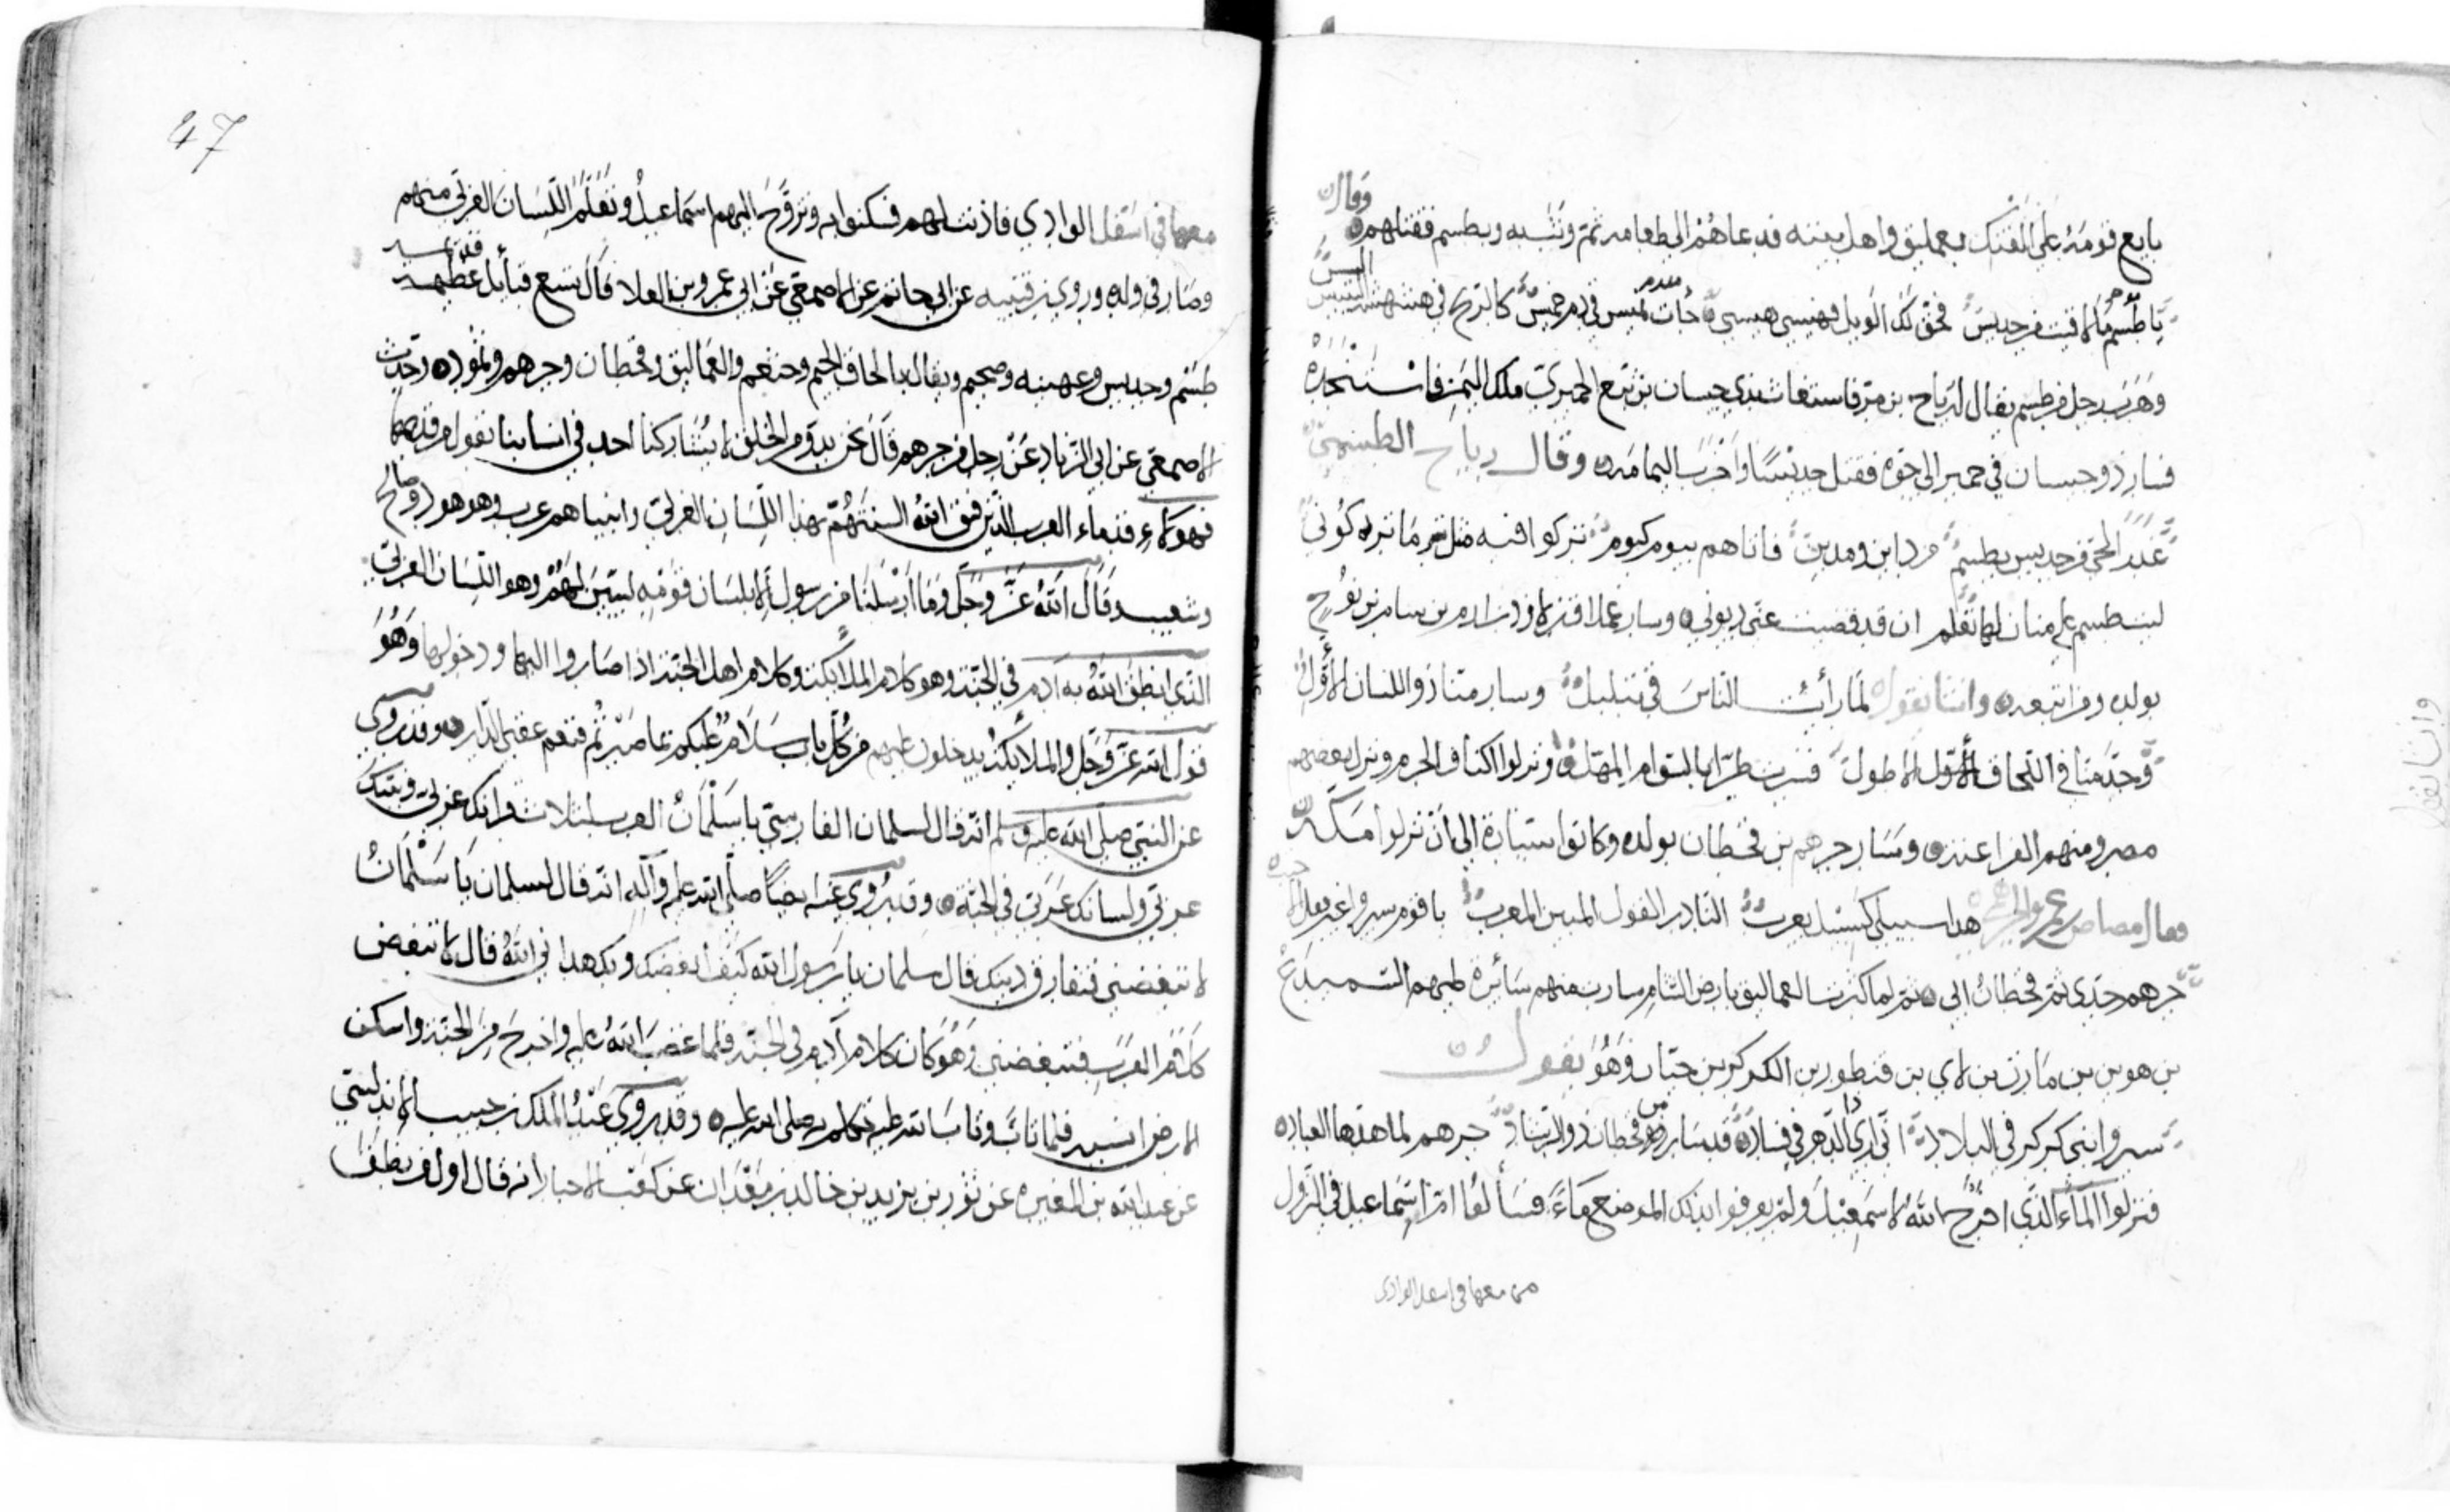 وقال
بايع قومه على الفتك بعمليق واهل بيته فدعاهم الى طعامه ثم وثب به وبطسم فقتلهم
يا طسم ما لاقيت من جديس حق لك الويل فهيسي هيسي
وهرب رجل من طسم يقال له رياح بن مرة فاستغاث بذي حسان بن تبع الحميري ملك اليمن فاستنجده
فسار ذو حسان في حمير الى جو فقتل جديسا واخرب اليمامة وقال رياح الطسمي
غدر الحي من جديس بطسم فاتاهم بيوم كيوم تركوا فيه مثل ما تركوني
ليت طسم على منازلها تعلم ان قد قضيت عني ديوني وسار عملاق بن لاوذ بن ارم بن سام بن نوح
بولده ومن اتبعه وانشا يقول لما رأيت الناس في تبلبل وسار منا ذو اللسان الأول
وجد منا في اللحاق الأول الاطول فسرت طرا بالسوام المهمل ونزلوا اكناف الحرم ونزل بعضهم
مصر ومنهم الفراعنة وسار جرهم بن قحطان بولده وكانوا سيارة الى أن نزلوا مكة
فقال مضاض بن عمرو الجرهمي هذا سبيلي كسبيل يعرب النادر القول المبين المعرب يا قوم سيروا غير فعل
جرهم جدي ثم قحطان ابي ثم لما كثرت العماليق بارض الشام سارت منهم سائرة عليهم السميدع
بن هوبر بن مازن بن لاي بن قنطور بن الكركر بن حيان وهو يقول
سيروا بني كركر في البلاد اني ارى الدهر في فساد قد سار من قحطان ذو الرشاد جرهم لما هدها العباد
فنزلوا الماء الذي اخرج الله لاسمعيل ولم يعرفوا بذلك الموضع ماءً فسألوا ام اسماعيل في النزول
معها في اسفل الوادي
وانشا يقول
47
معها في اسفل الوادي فاذنت لهم فسكنوا به وتزوج اليهم اسماعيل وتعلم اللسان العربي منهم
وصار في ولده وروى بن قتيبه عن ابي حاتم عن الاصمعي عن ابي عمرو بن العلا قال تسع قبائل قديمة
طسم وجديس وعهينه وضجم ويقال بالحاق الجيم وخثعم والعماليق وقحطان وجرهم وثمود وحدث
الاصمعي عن ابي الزناد عن رجل من جرهم قال نحن بدؤ من الخلق لا يشاركنا احد في انسابنا نقول من قدمها
فهولاء قدماء العرب الذين فتق الله السنتهم بهذا اللسان العربي وانبياهم عرب وهو هود وصالح
وشعيب وقال الله عز وجل وما أرسلنا من رسول إلا بلسان قومه ليبين لهم وهو اللسان العربي
الذي انطق الله به آدم في الجنة وهو كلام الملائكة وكلام اهل الجنة اذا صاروا اليها ودخولها وهو
قول الله عز وجل والملائكة يدخلون عليهم من كل باب سلام عليكم بما صبرتم فنعم عقبى الدار وقد روي
عن النبي صلى الله عليه وسلم انه قال لسلمان الفارسي يا سلمان العرب لثلاث قرانك عربي ونبيك
عربي ولسانك عربي في الجنة وقد روي عنه ايضا صلى الله عليه وآله انه قال لسلمان يا سلمان
لا تبغضني فتفارق دينك قال سلمان يا رسول الله كيف ابغضك وبك هداني الله قال لا تبغض
كلام العرب فتبغضني وهو كان كلام آدم في الجنة فلما غضب الله عليه واخرج من الجنة واسكن
الارض انسيه فلما تاب وتاب الله عليه تكلم به صلى الله عليه وقد روي عن عبد الملك بن حبيب الاندلسي
عن عبد الله بن المغيره عن ثور بن يزيد بن خالد بن معدان عن كعب الاحبار انه قال اول من نطق